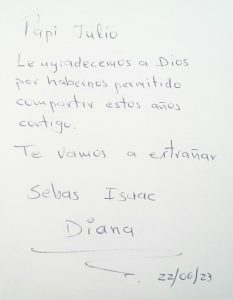 Papi Julio
Le agradecemos a Dios
por habernos permitido
compartir estos años
contigo.
Te vamos a extrañar
Sebas Isaac
Diana
22/06/23